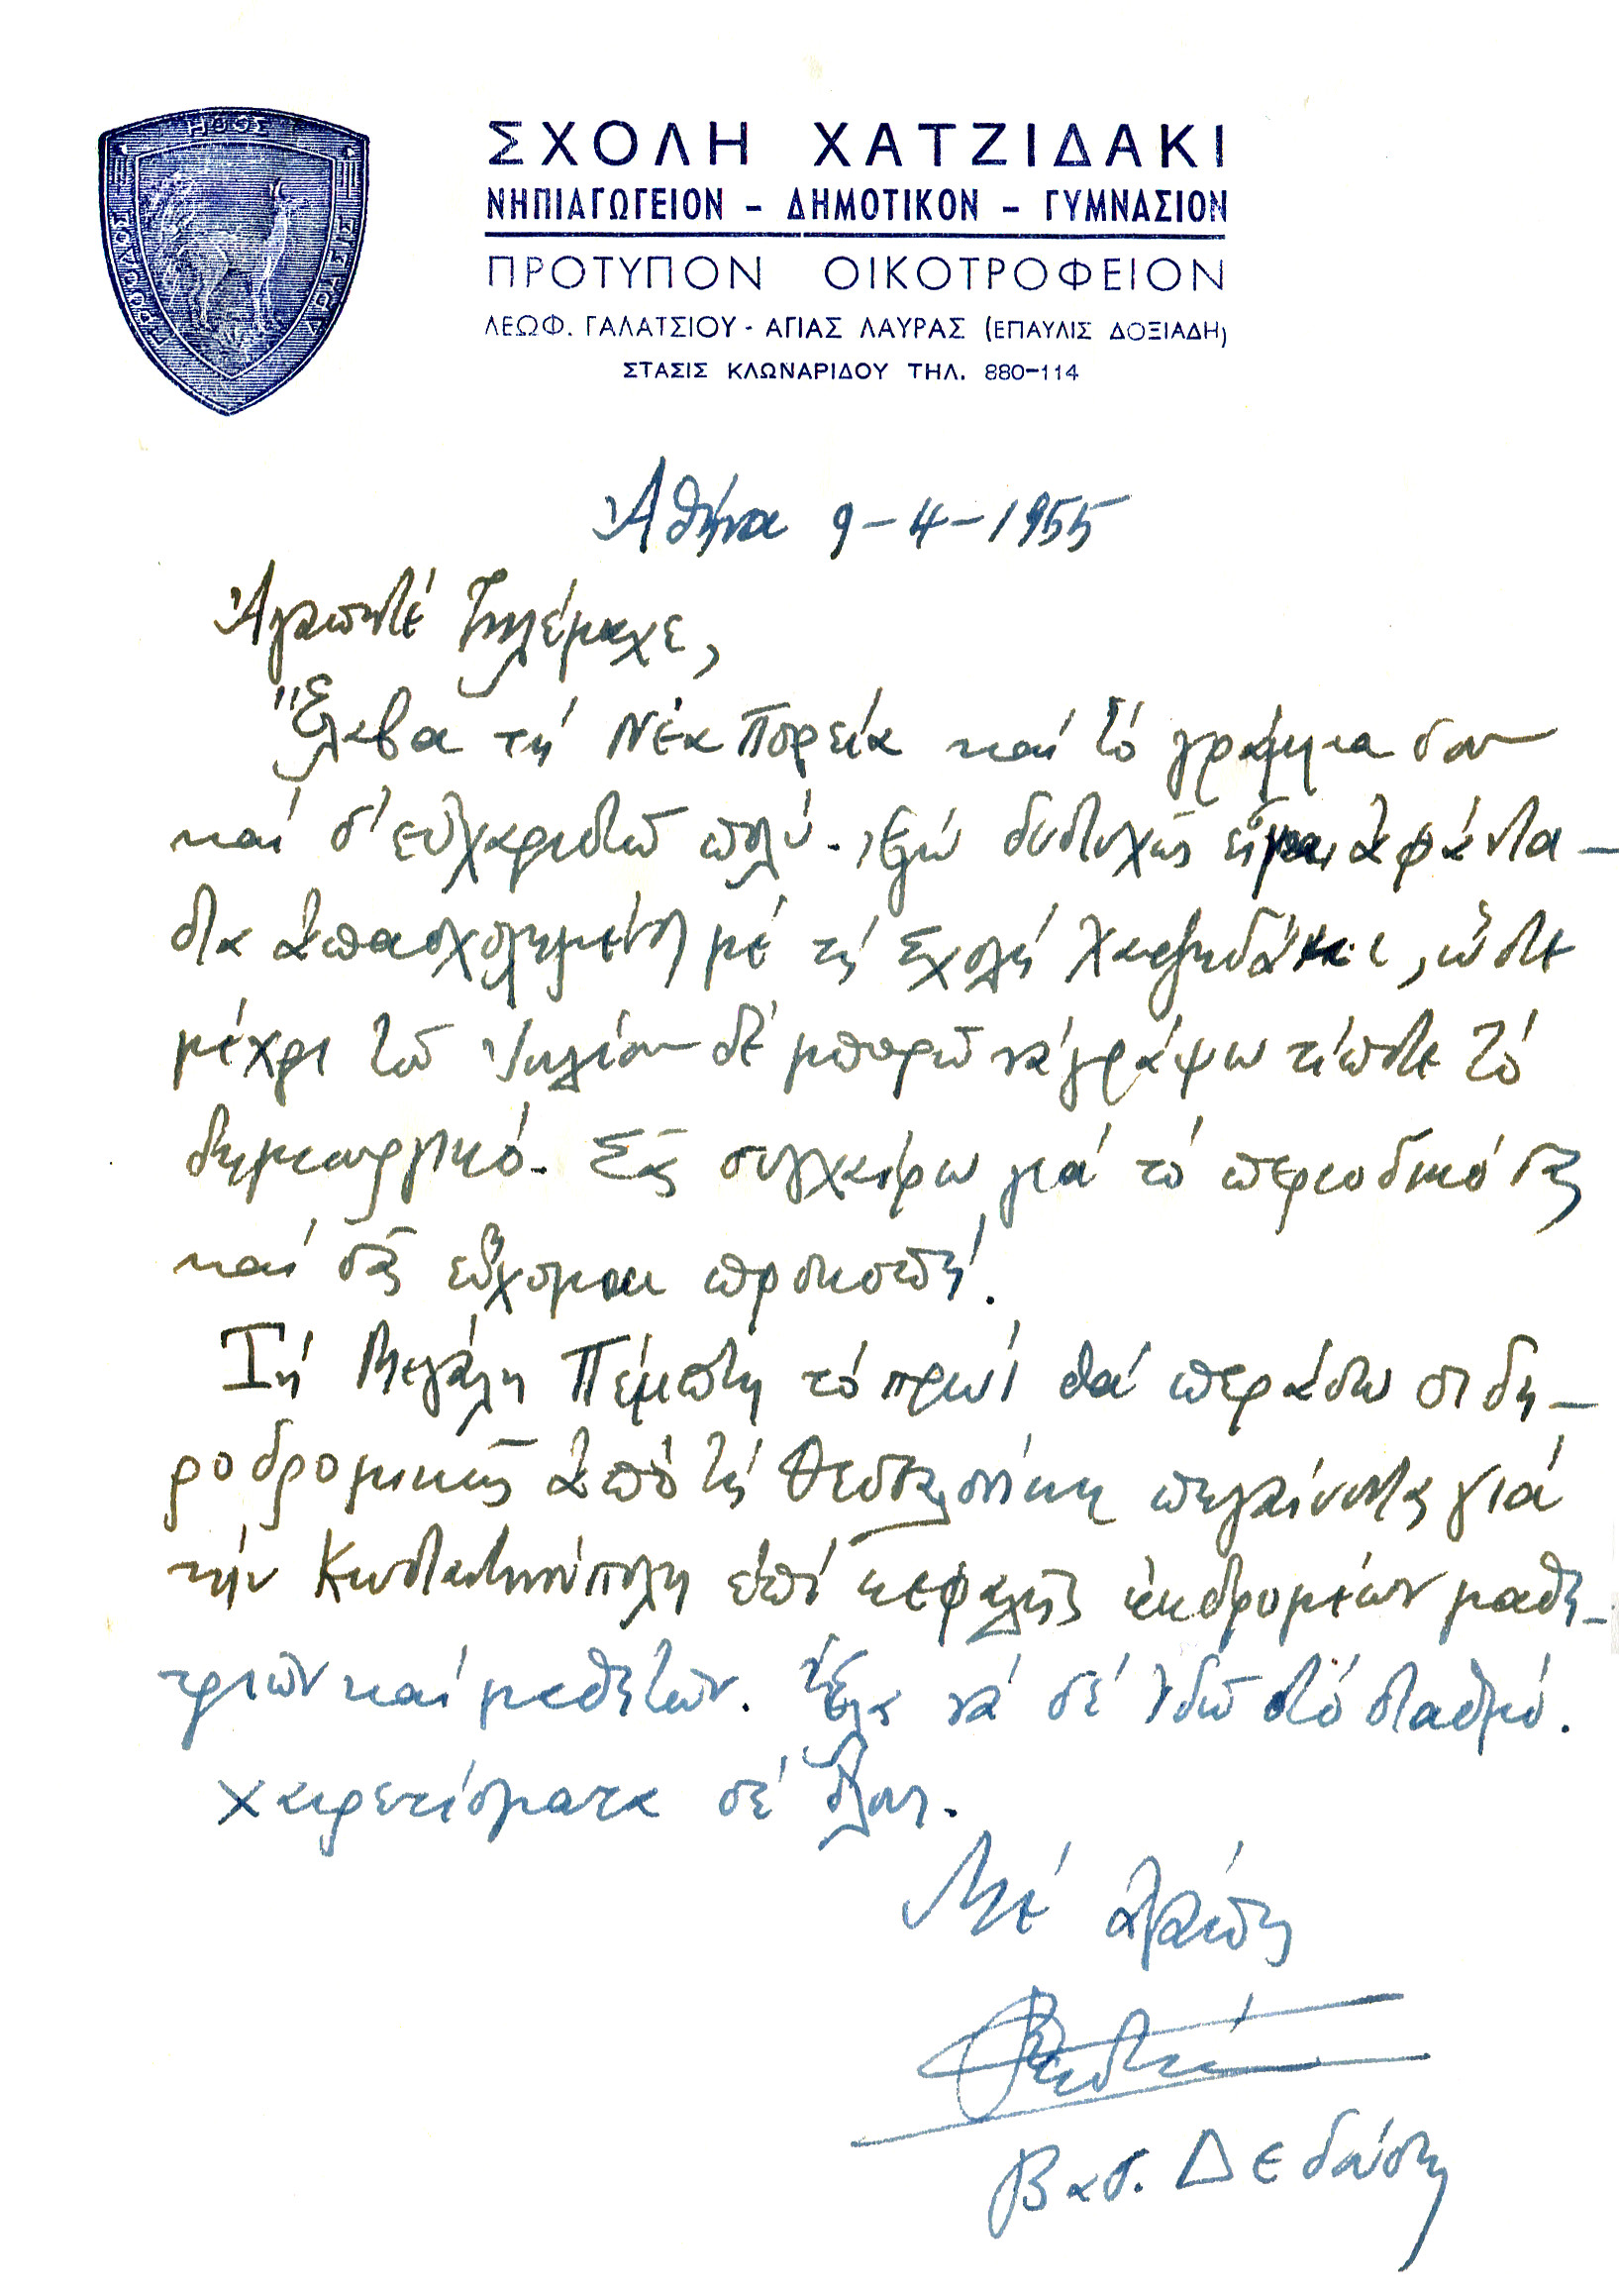 ΗΘΟΣ
ΣΧΟΛΗ ΧΑΤΖΙΔΑΚΙ
ΝΗΠΙΑΓΩΓΕΙΟΝ – ΔΗΜΟΤΙΚΟΝ – ΓΥΜΝΑΣΙΟΝ
ΠΡΟΤΥΠΟΝ ΟΙΚΟΤΡΟΦΕΙΟΝ
ΛΕΩΦ. ΓΑΛΑΤΣΙΟΥ - ΑΓΙΑΣ ΛΑΥΡΑΣ (ΕΠΑΥΛΙΣ ΔΟΞΙΑΔΗ)
ΣΤΑΣΙΣ ΚΛΩΝΑΡΙΔΟΥ ΤΗΛ. 880-114
Ἀθήνα 9-4-1955
Ἀγαπητέ Τηλέμαχε,
Ἔλαβα τή Νέα Πορεία καί τό γράμμα σου
καί σ' εὐχαριστῶ πολύ. Ἐγώ δυστυχῶς εἶμαι ἀφάντα-
στα ἀπασχολημένη μέ τή Σχολή Χατζηδάκι, ὥστε
μέχρι τοῦ Ἰουλίου δέ μπορῶ νά γράψω τίποτε τό
δημιουργικό. Σᾶς συγχαίρω γιά τό περιοδικό σας
καί σᾶς εὔχομαι προκοπή.
Τή Μεγάλη Πέμπτη τό πρωί θά περάσω σιδη-
ροδρομικῶς ἀπό τή Θεσσαλονίκη πηγαίνοντας γιά
τήν Κωνσταντινούπολη ἐπί κεφαλῆς ἐκδρομέων μαθη-
τριῶν καί μαθητῶν. Ἔλα νά σέ ἰδῶ στό σταθμό.
Χαιρετίσματα σέ ὅλους.
Μέ ἀγάπη
Βασ. Δεδούση